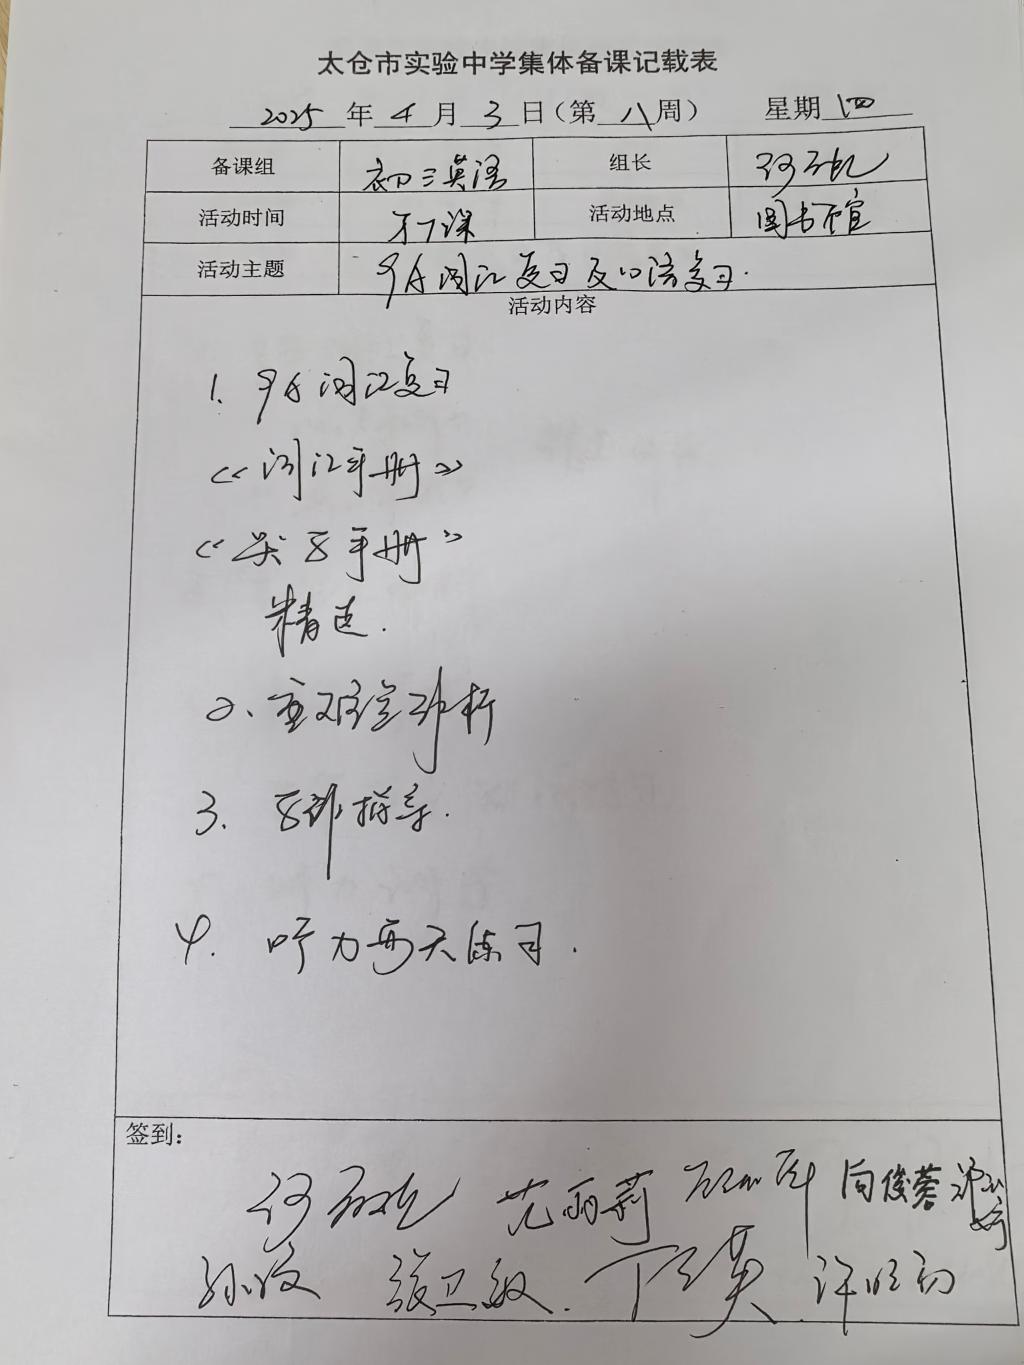 太仓市实验中学集体备课记载表
2025年4月3日(第八周) 星期四
备课组 初三英语 组长
活动时间 下课 活动地点 图书馆
活动主题 9A词汇复习及口语复习.
活动内容
1. 9A词汇复习
《词汇手册》
《学手册》
精选.
2、重难点评析
3. 指导.
4. 听力两天练习.
签到:
范丽莉 向俊蓉
张卫敏. 丁英 许